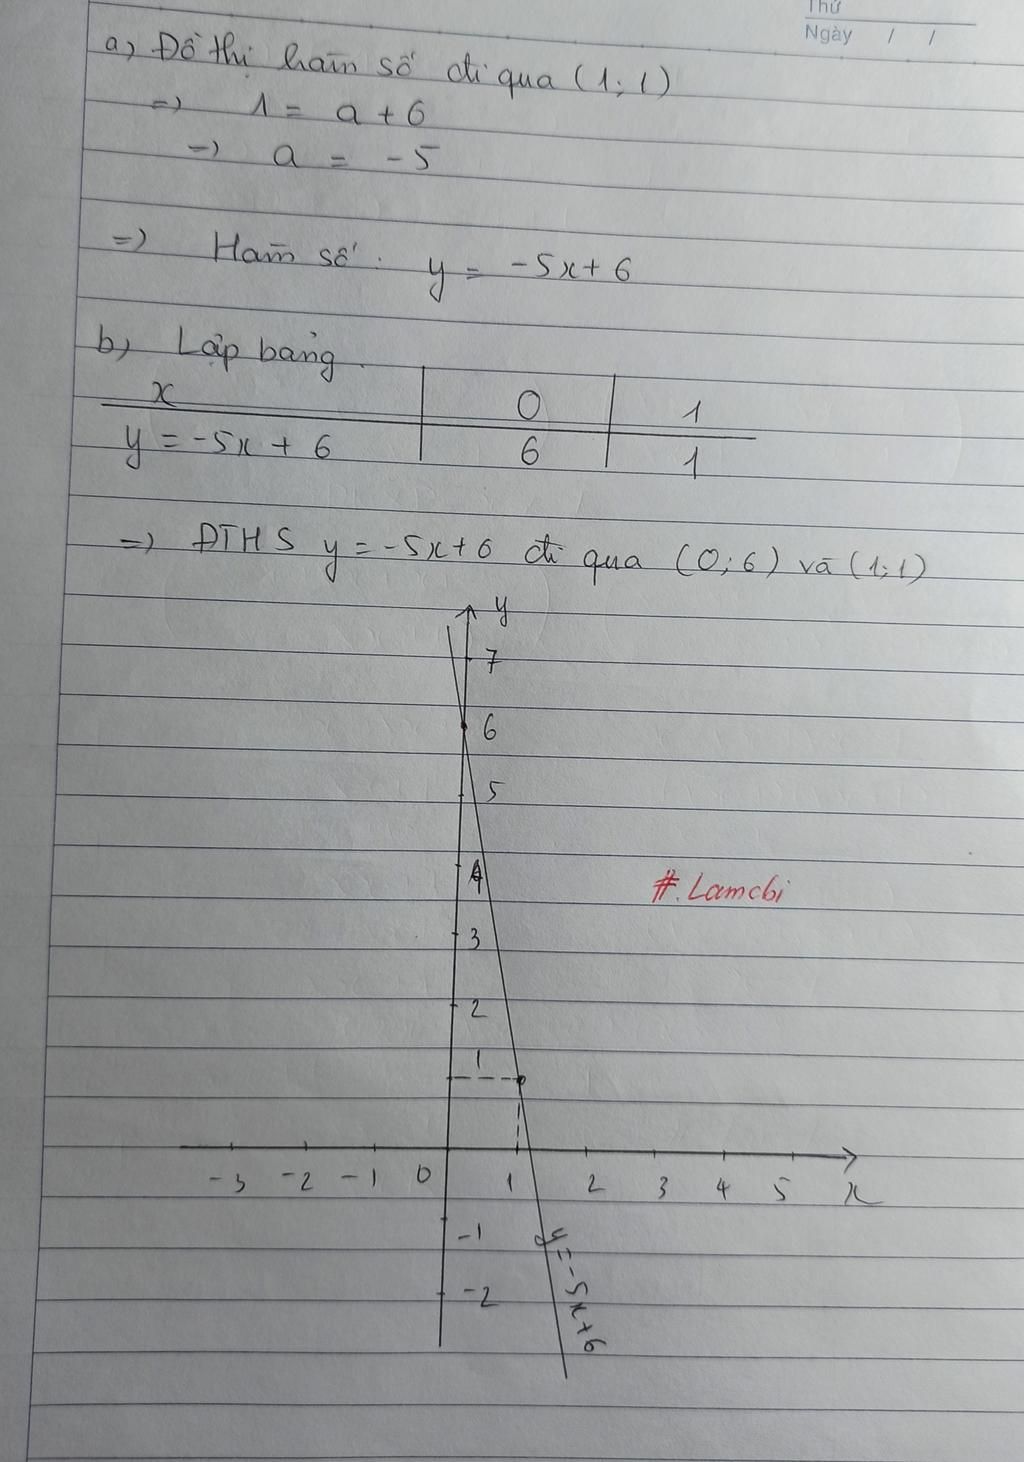 Thứ
Ngày / /
a, Đồ thị hàm số đi qua (1; 1)
=> 1 = a + 6
=> a = -5
=> Hàm số: y = -5x + 6
b, Lập bảng.
x 0 1
y = -5x + 6 6 1
=> ĐTHS y = -5x + 6 đi qua (0; 6) và (1; 1)
y
7
6
5
4
#.Lamcbi
3
2
1
-3 -2 -1 0 1 2 3 4 5 x
-1
-2
y = -5x + 6